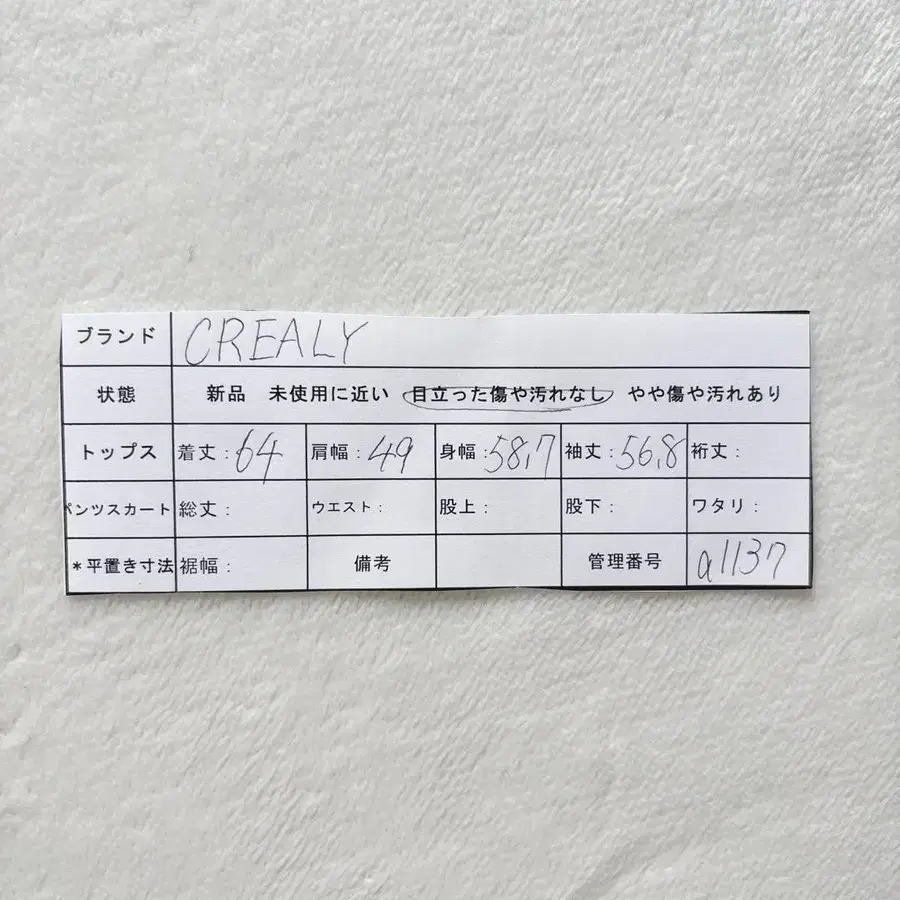 ブランド CREALY
状態 新品 未使用に近い 目立った傷や汚れなし やや傷や汚れあり
トップス 着丈:64 肩幅:49 身幅:58,7 袖丈:56,8 裄丈:
パンツスカート 総丈: ウエスト: 股上: 股下: ワタリ:
*平置き寸法 裾幅: 備考 管理番号 a1137